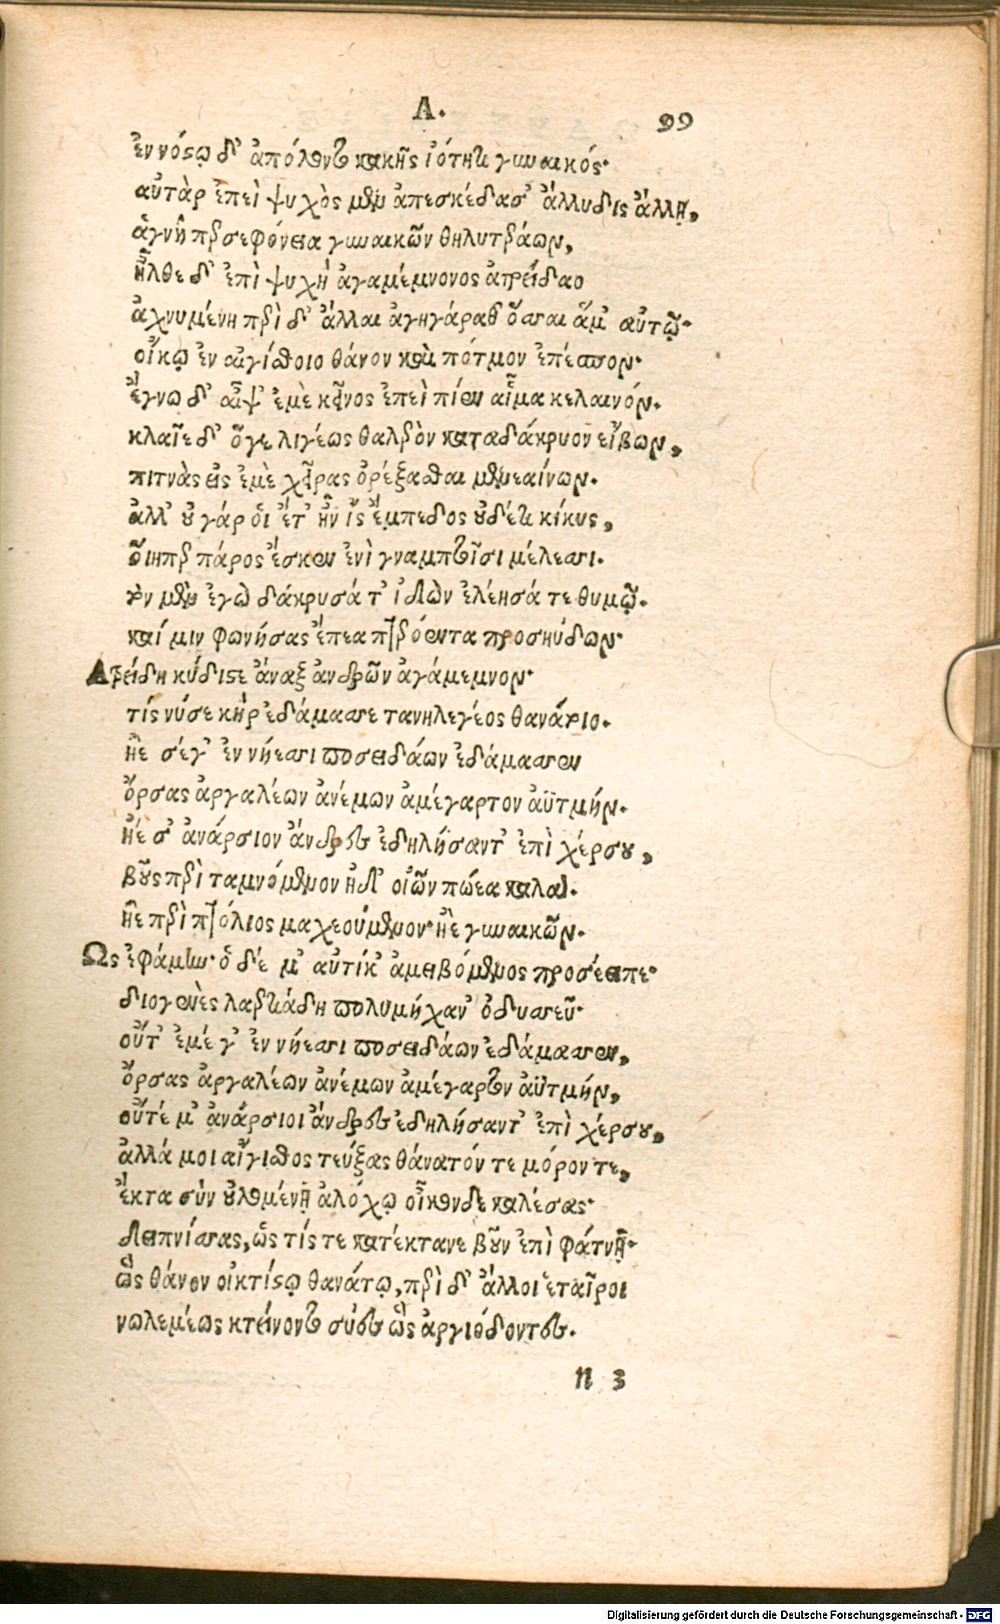 Λ.
99
ἐν νόστῳ δ᾽ ἀπόλοντο κακῆς ἰότητι γυναικός·
αὐτὰρ ἐπεὶ ψυχὸς μὲν ἀπεσκέδασ᾽ ἄλλυδις ἄλλῃ,
ἁγνὴ περσεφόνεια γυναικῶν θηλυτεράων,
ἦλθε δ᾽ ἐπὶ ψυχὴ ἀγαμέμνονος ἀτρείδαο
ἀχνυμένη περὶ δ᾽ ἄλλαι ἀγηγέραθ᾽ ὅσσαι ἅμ᾽ αὐτῷ·
οἴκῳ ἐν αἰγίσθοιο θάνον καὶ πότμον ἐπέσπον·
ἔγνω δ᾽ αἶψ᾽ ἐμὲ κεῖνος ἐπεὶ πίεν αἷμα κελαινόν.
κλαῖε δ᾽ ὅγε λιγέως θαλερὸν κατα δάκρυον εἴβων,
πιτνὰς εἰς ἐμὲ χεῖρας ὀρέξασθαι μενεαίνων.
ἀλλ᾽ οὐ γάρ οἱ ἔτ᾽ ἦν ἲς ἔμπεδος οὐδέτι κίκυς,
οἵηπερ πάρος ἔσκεν ἐνὶ γναμπτοῖσι μέλεσσι.
τὸν μὲν ἐγὼ δάκρυσά τ᾽ ἰδὼν ἐλέησά τε θυμῷ.
καί μιν φωνήσας ἔπεα πτερόεντα προσηύδων·
Ατρείδη κύδιστε ἄναξ ἀνδρῶν ἀγάμεμνον·
τίς νύ σε κὴρ ἐδάμασσε τανηλεγέος θανάτοιο.
ἠὲ σέγ᾽ ἐν νήεσσι ποσειδάων ἐδάμασσεν
ὄρσας ἀργαλέων ἀνέμων ἀμέγαρτον ἀϋτμήν.
ἠέ σ᾽ ἀνάρσιον ἄνδρες ἐδηλήσαντ᾽ ἐπὶ χέρσου,
βοῦς περὶ ταμνόμενον ἠδ᾽ οἰῶν πώεα καλά.
ἠὲ περὶ πτόλιος μαχεούμενον· ἠὲ γυναικῶν.
Ως ἐφάμην· ὁ δέ μ᾽ αὐτίκ᾽ ἀμειβόμενος προσέειπε·
διογενὲς λαερτιάδη πολυμήχαν᾽ ὀδυσσεῦ·
οὔτ᾽ ἐμέ γ᾽ ἐν νήεσσι ποσειδάων ἐδάμασσεν,
ὄρσας ἀργαλέων ἀνέμων ἀμέγαρτον ἀϋτμήν,
οὔτέ μ᾽ ἀνάρσιοι ἄνδρες ἐδηλήσαντ᾽ ἐπὶ χέρσου,
ἀλλά μοι αἴγισθος τεύξας θάνατόν τε μόρον τε,
ἔκτα σὺν οὐλομένῃ ἀλόχῳ οἶκονδε καλέσας·
δειπνίσσας, ὥς τίς τε κατέκτανε βοῦν ἐπὶ φάτνῃ·
ὣς θάνον οἰκτίστῳ θανάτῳ, περὶ δ᾽ ἄλλοι ἑταῖροι
νωλεμέως κτείνοντο σύες ὣς ἀργιόδοντες.
n 3
Digitalisierung gefördert durch die Deutsche Forschungsgemeinschaft - DFG